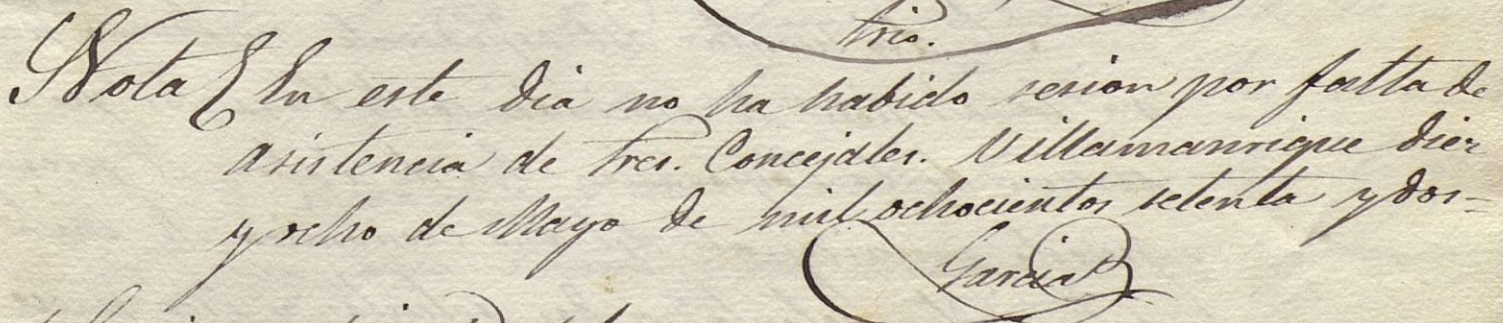 Srio.
Nota { En este dia no ha habido sesion por falta de
asistencia de tres Concejales. Villamanrique diez
y ocho de Mayo de mil ochocientos setenta y dos=
Garcia